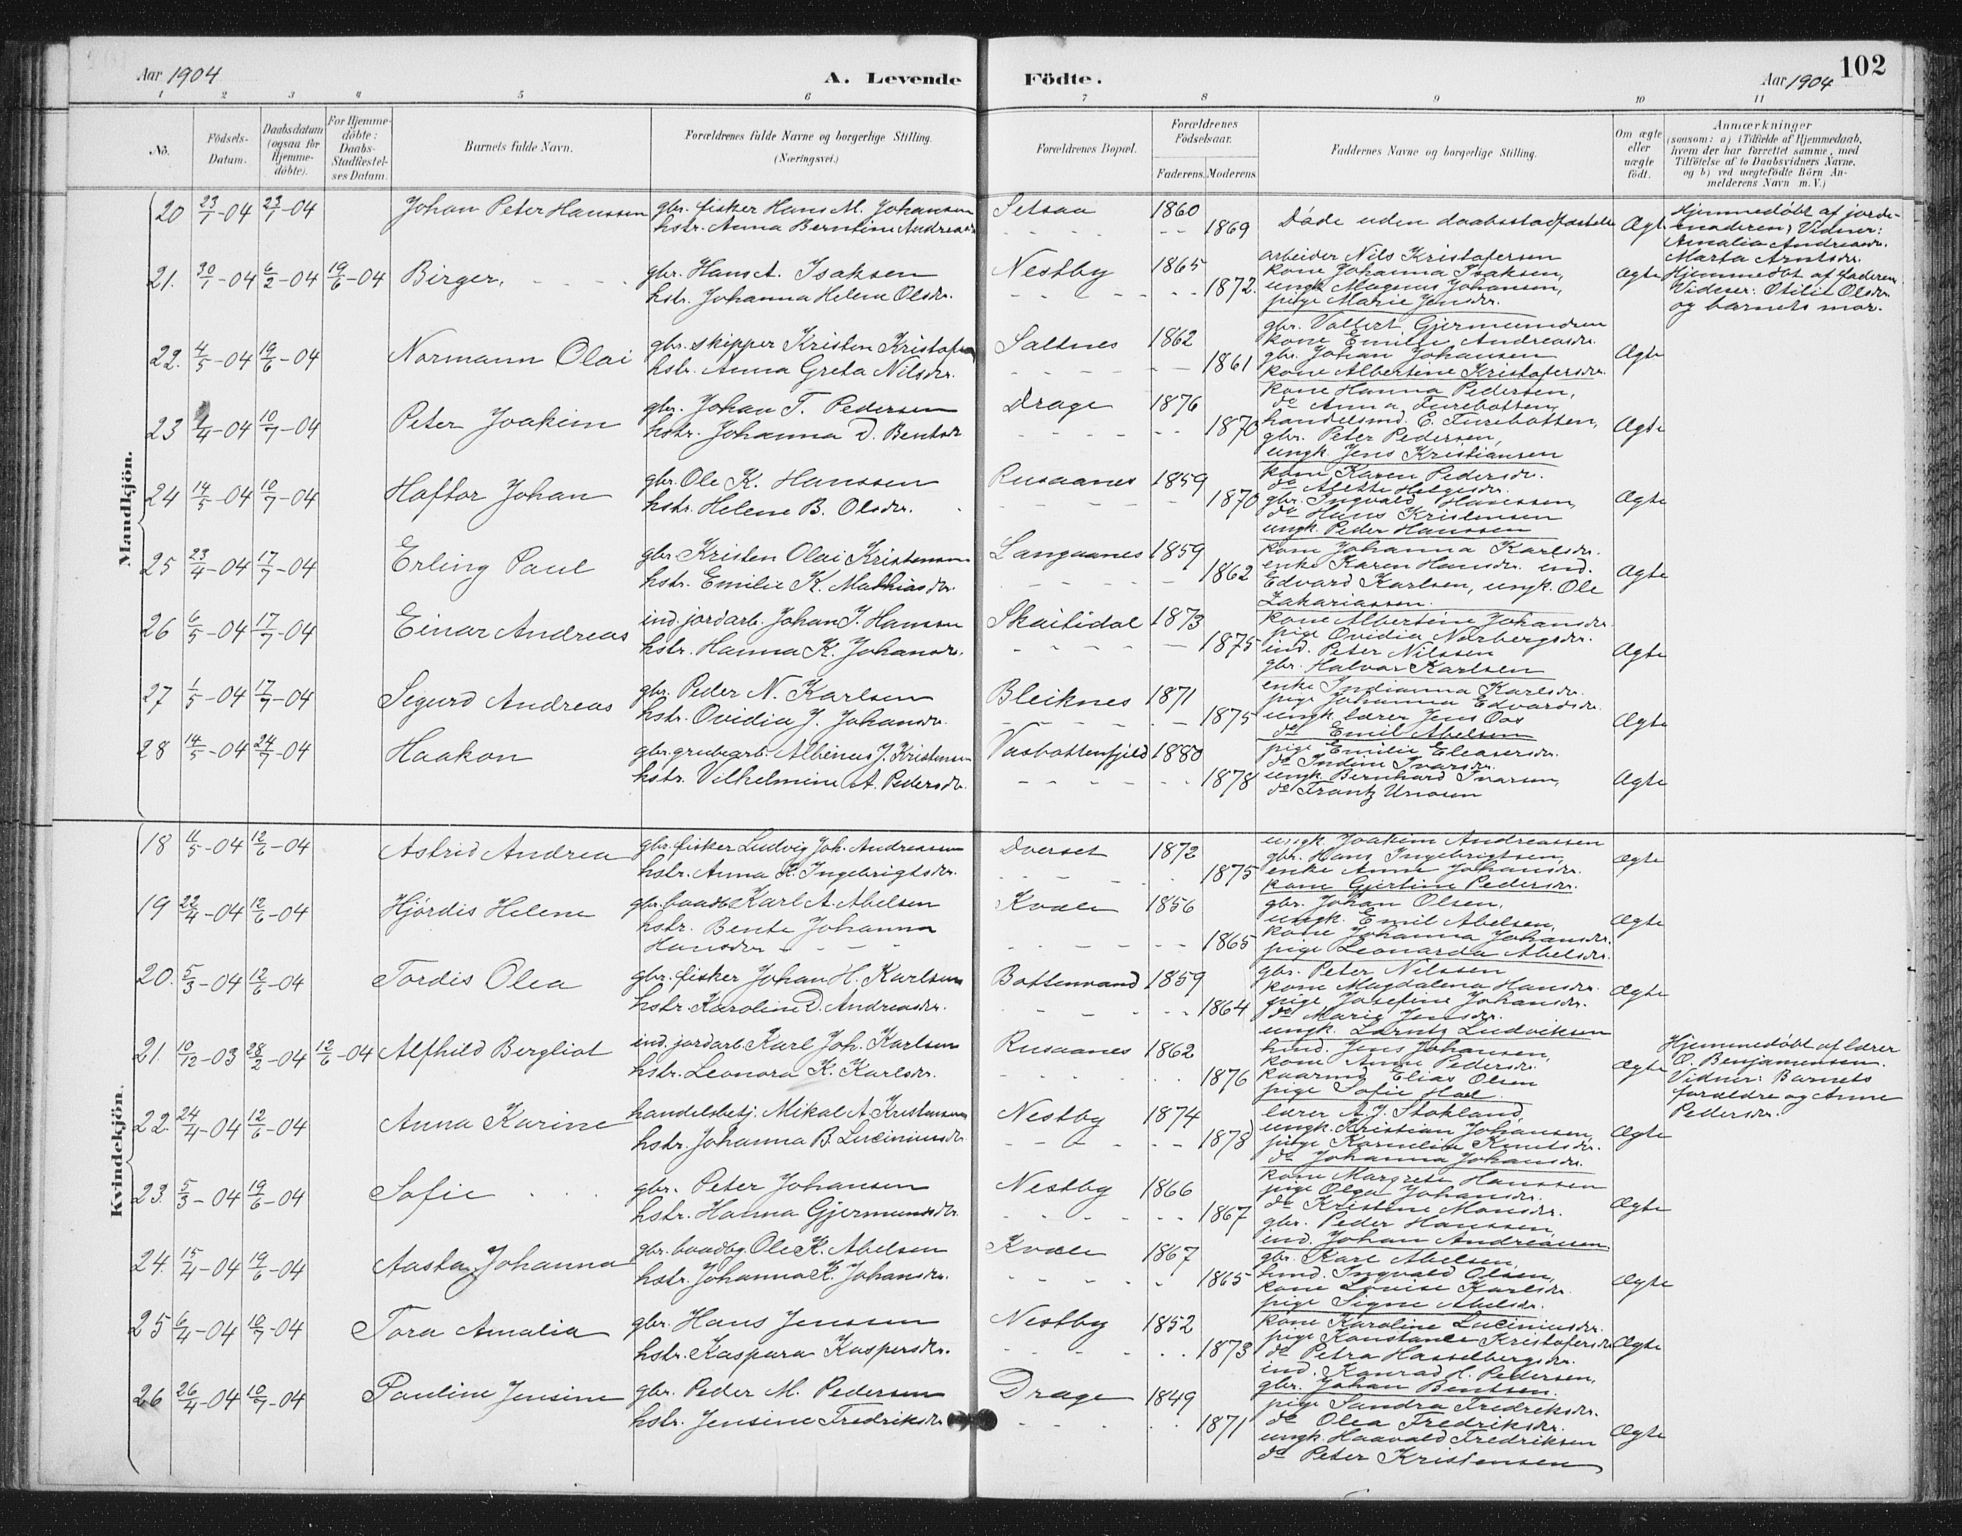 Aar 1904
A. Levende Födte.
Aar 1904 102
1 2 3 4 5 6 7 8 9 10 11
No.
Födsels-Datum.
Daabsdatum (ogsaa for Hjemme-döbte).
For Hjemme-döbte: Daabs-Stadfæstel-ses Datum.
Barnets fulde Navn.
Forældrenes fulde Navne og borgerlige Stilling. (Næringsvei.)
Forældrenes Bopæl.
Forældrenes Födselsaar.
Faderens. Moderens.
Faddernes Navne og borgerlige Stilling.
Om ægte eller uægte födt.
Anmærkninger
(saasom: a) i Tilfælde af Hjemmedaab,
hvem der har forrettet samme, med
Tilföielse af to Daabsvidners Navne,
og b) ved uægtefödte Börn An-
melderens Navn m. V.)
Mandkjön.
20 23/1-04 23/1-04 Johan Peter Hanssen gbr. fisker Hans M. Johansen Setsaa 1860
hstr. Anna Berntine Andreasdr. 1869 Döde uden daabsstadfæstelse Ægte
Hjemmedøbt af jorde-
moderen, Vidner:
Amalia Andreasdr.
Marta Arntsdr.
21. 30/1-04 6/2-04 19/6-04 Birger. gbr. Hans A. Isaksen Nestby 1865
hstr. Johanna Helena Olsdr. 1872.
arbeider Nils Kristofersen
kone Johanna Isaksen,
ungk. Magnus Johansen,
pige Marie Jensdr.
Ægte
Hjemmedøbt af faderen
Vidner: Otilie Olsdr.
og barnets mor.
22. 4/5-04 19/6-04 Normann Olai gbr. skipper Kristen Kristofersen Saltnes 1862
hstr. Anna Greta Nilsdr. 1861
gbr. Volfert Gjermundsen
kone Emilie Andreasdr.
gbr. Johan Johansen
kone Albertine Kristofersdr.
Ægte
23 /4-04 10/7-04 Peter Joakim gbr. Johan T. Pedersen Drage 1876
hstr. Johanna D. Bentsdr 1870
kone Hanna Pedersen,
do Anna Furebotten,
handelsmd. E. Furebotten,
gbr. Peter Pedersen,
ungk. Jens Kristiansen
Ægte
24 14/5-04 10/7-04 Haftor Johan gbr. Ole K. Hanssen Rusaanes 1859
hstr. Helene B. Olsdr. 1870
kone Karen Pedersdr.
do Alette Helgesdr.
gbr. Ingvald Hanssen,
do Hans Kristensen
ungk. Peder Hanssen
Ægte
25 23/4-04 17/7-04 Erling Paul gbr. Kristen Olai Kristensen Langaanes 1859
hstr. Emilie K. Mathiasdr. 1862
kone Johanna Karlsdr.
enke Karen Hansdr. ind.
Edvard Karlsen, ungk. Ole
Zakariassen.
Ægte
26 6/5-04 17/7-04 Einar Andreas ind. jordarb. Johan J. Hansen Skaitidal 1873
hstr. Hanna K. Johansdr. 1875
kone Albertine Johansdr.
pige Ovidia Norbergsdr.
ind. Peter Nilssen
gbr. Halvor Karlsen
Ægte
27 1/5-04 17/7-04 Sigurd Andreas gbr. Peder N. Karlsen Bleiknes 1871
hstr. Ovidia J. Johansdr. 1875
enke Indianna Karlsdr.
pige Johanna Edvardsdr.
ungk. lærer Jens Oos
do Emil Abelsen
Ægte
28 14/5-04 24/7-04 Haakon gbr. grubearb. Albinus J. Kristensen Vasbottenfjeld 1880
hstr. Vilhelmine A. Pedersdr. 1878
pige Emilie Eleasersdr.
do Indine Ivarsdr.
ungk. Bernhard Ivarsen,
do Frantz Unosen
Ægte
Kvindekjön.
18 11/5-04 12/6-04 Astrid Andrea gbr. fisker Ludvig Joh. Andreassen Dverset 1872
hstr. Anna K. Ingebrigtsdr. 1875
ungk. Joakim Andreassen
gbr. Hans Ingebrigtsen,
enke Anne Johansdr.
kone Gjertine Pedersdr.
Ægte
19 22/4-04 12/6-04 Hjördis Helene gbr. baadb. Karl A. Abelsen Kvæle 1856
hstr. Bente Johanna
Hansdr. 1865
gbr. Johan Olsen,
ungk. Emil Abelsen,
kone Johanna Johansdr.
pige Leonarda Abelsdr.
Ægte
20. 5/3-04 12/6-04 Tordis Olea gbr. fisker Johan H. Karlsen Bottenvand 1859
hstr. Karoline D. Andreasdr. 1864
gbr. Peter Nilssen
kone Magdalena Hansdr.
pige Josefine Johansdr.
do Marie Jensdr.
ungk. Larntz Ludviksen
Ægte
21. 10/12-03 28/2-04 12/6-04 Alfhild Bergliot ind. jordarb. Karl Joh. Karlsen Rusaanes 1862
hstr. Leonora K. Karlsdr. 1876
hmd. Jens Johansen,
kone Anne Pedersdr.
kaarmd. Elias Olsen
pige Sofie Hal.
Ægte
Hjemmedøbt af lærer
O. Benjaminsen.
Vidner: Barnets
forældre og Anne
Pedersdr.
22. 24/4-04 12/6-04 Anna Karine handelsbetj. Mikal A. Kristensen Nestby 1874
hstr. Johanna B. Luciniusdr. 1878
lærer A. J. Stokland,
ungk. Kristian Johansen,
pige Kornelia Knutsdr.
do Johanna Johansdr.
Ægte
23. 5/3-04 19/6-04 Sofie gbr. Peter Johansen Nestby 1866
hstr. Hanna Gjermundsdr. 1867
kone Margrete Hanssen
pige Olga Johansdr.
do Kristine Monsdr.
gbr. Peder Hanssen,
ind. Johan Andreassen.
Ægte
24. 15/4-04 19/6-04 Aasta Johanna gbr. baadbg. Ole K. Abelsen Kvæle 1867
hstr. Johanna K. Johansdr. 1865
gbr. Karl Abelsen,
hmd. Ingvald Olsen,
kone Lovise Karlsdr.
pige Signe Abelsdr.
Ægte
25 6/4-04 10/7-04 Tora Amalia gbr. Hans Jenssen Nestby 1852
hstr. Kaspara Kaspersdr. 1873
kone Karoline Luciniusdr.
pige Konstance Kristofersdr.
do Petra Hasselbergsdr.
ind. Konrad H. Pedersen,
gbr. Johan Bentsen.
Ægte
26 26/4-04 10/7-04 Pauline Jensine gbr. Peder M. Pedersen Drage 1849
hstr. Jensine Fredriksdr. 1871
pige Sandra Fredriksdr.
do Olea Fredriksdr.
ungk. Haavald Fredriksen
do Peter Kristensen
Ægte